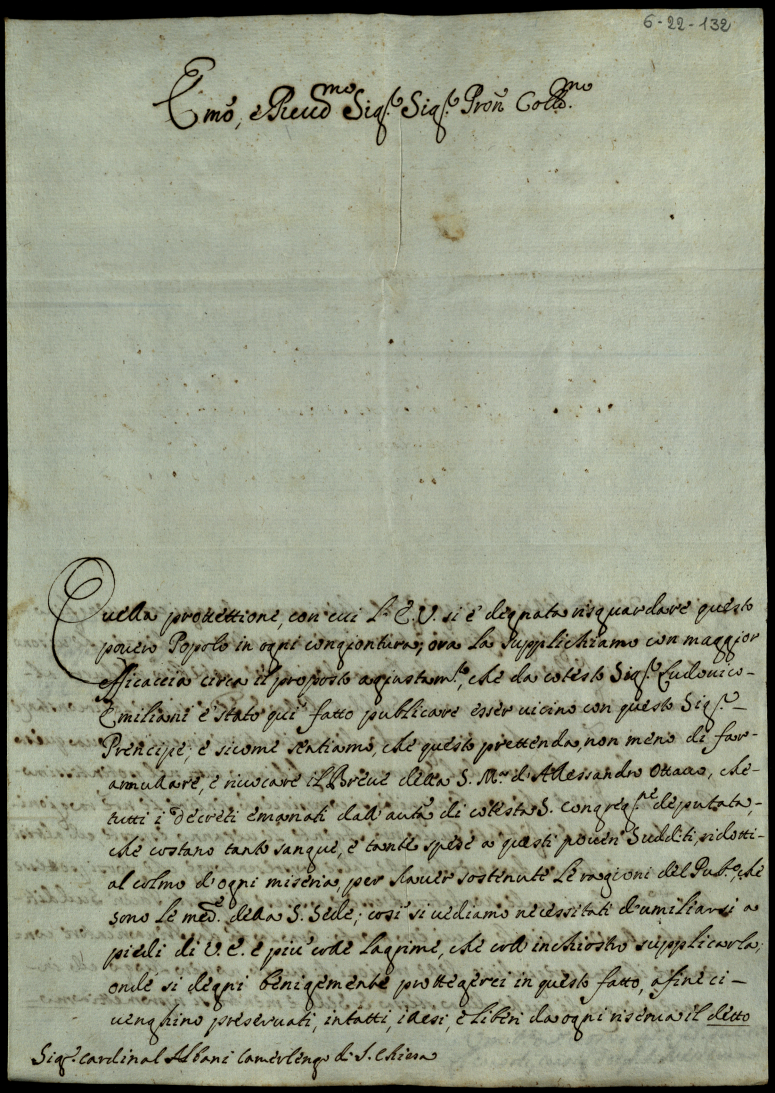 6-22-132
Emõ, e Reud.mo Sig.r Sig.r Pron Coll.mo
Quella prottettione, con cui L'E.V. si è degnata risguardare questo
pouero Popolo in ogni congiontura, ora La supplichiamo con maggior
efficaccia circa il proposto agiustam.to, che da cotesto Sig.r Ludouico
Emiliani è stato qui fatto publicare esser uicino con questo Sig.r
Prencipe, e sicome sentiamo, che questo prettenda, non meno di far
annullare, e riuocare il Breue della S. M. d'Alessandro Ottauo, che
tutti i Decreti emanati dall'autà di cotesta S. Congreg.ne deputata,
che costano tanto sangue, e tante spese a questi poueri Sudditi, ridotti
al colmo d'ogni miseria, per hauer sostenute Le ragioni del Pub.co, che
sono Le med.e della S. Sede; così si uediamo necessitati d'umiliarsi a
piedi di V.E. e più colle Lagrime, che coll'inchiostro supplicarla,
onde si degni benignemente prottegerci in questo fatto, afine ci
uenghino preseruati, intatti, ilesi, e Liberi da ogni riserua il detto
Sig.r Cardinal Albani Camerlengo di S. Chiesa